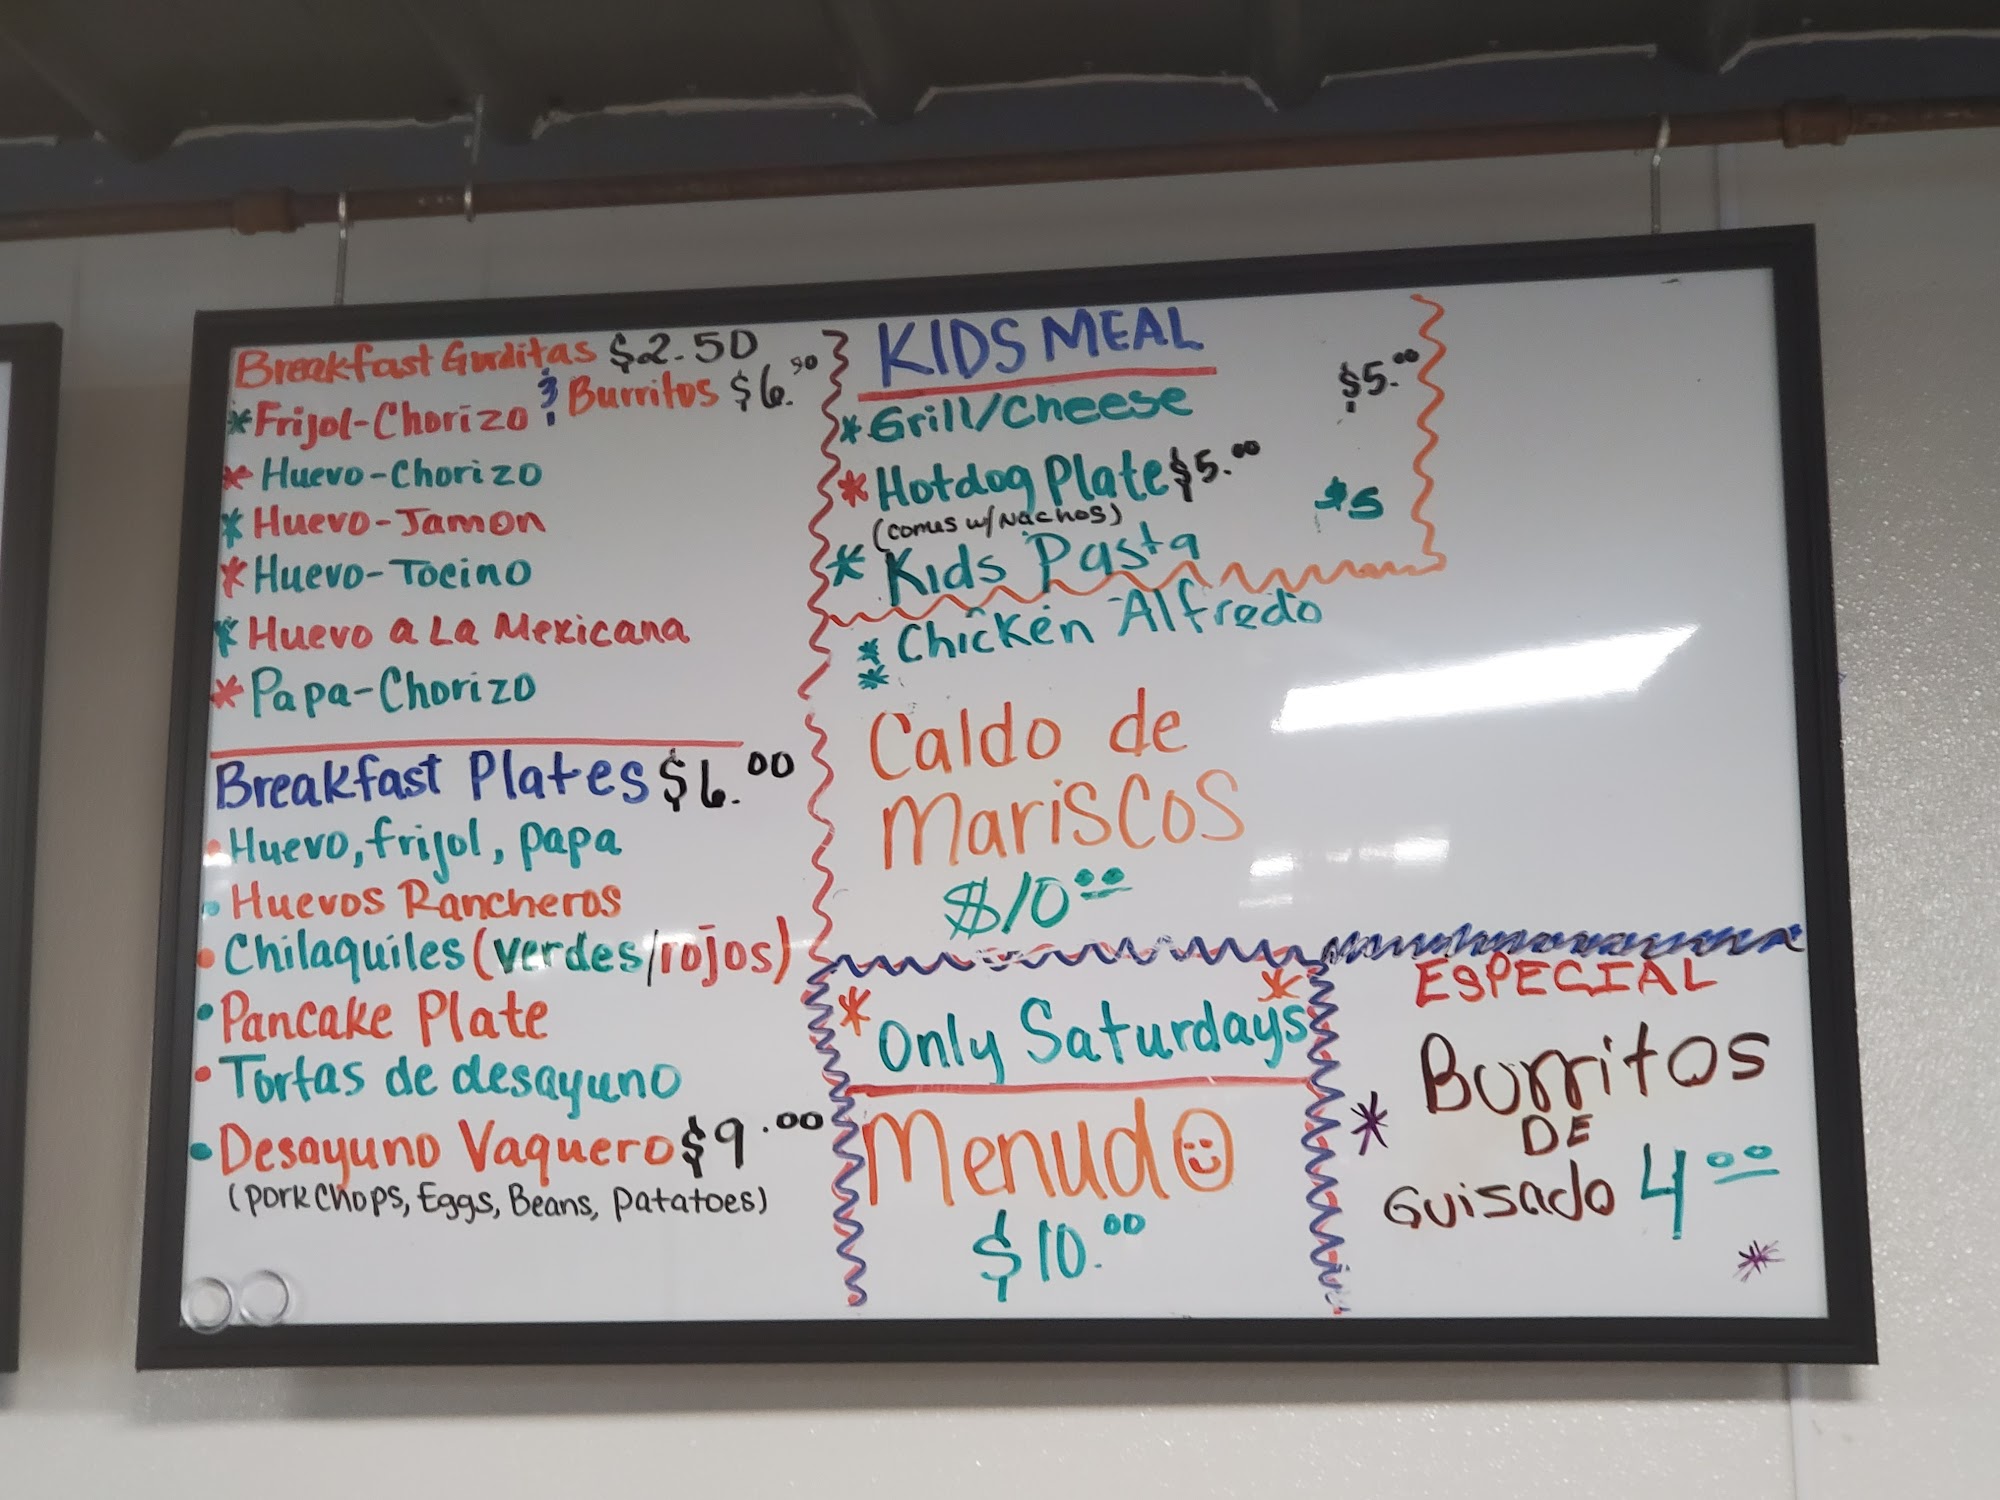 Breakfast Gurditas $2.50
& Burritos $6.50
*Frijol-Chorizo
*Huevo-Chorizo
*Huevo-Jamon
*Huevo-Tocino
*Huevo a La Mexicana
*Papa-Chorizo
Breakfast Plates $6.00
•Huevo, frijol, papa
•Huevos Rancheros
•Chilaquiles (verdes/rojos)
•Pancake Plate
•Tortas de desayuno
•Desayuno Vaquero $9.00
(Pork Chops, Eggs, Beans, Patatoes)
KIDS MEAL
*Grill/Cheese $5.00
*Hotdog Plate $5.00
(comes w/Nachos)
*Kids Pasta $5
*Chicken Alfredo
*
Caldo de
Mariscos
$10.00
*Only Saturdays*
Menudo
$10.00
ESPECIAL
*Burritos
DE
Guisado 4.00
*